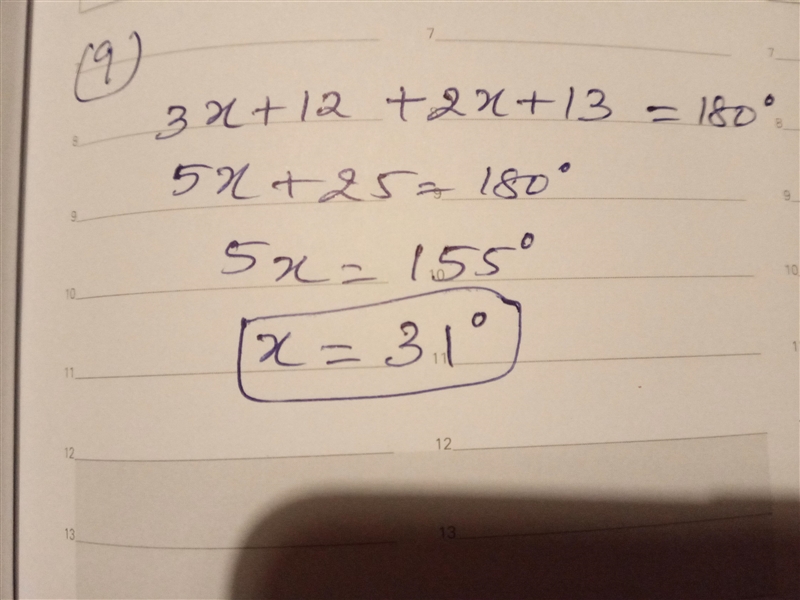 7
(9)
7
3x+12 +2x+13 = 180°
8
8
5x+25 = 180°
9
9
9
5x = 155°
10
10
10
x = 31°
11
11
12
12
13
13